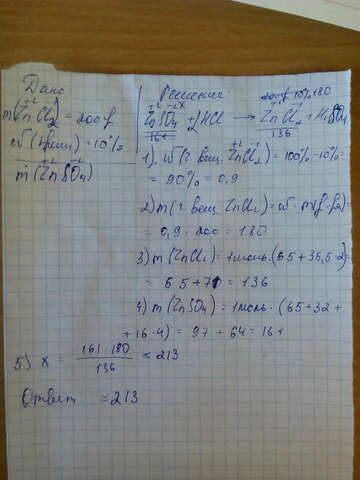 Дано
m(ZnCl₂) = 200 г
w(прим) = 10%
m(ZnSO₄)
Решение:
200 г 10% 180
x
ZnSO₄ + 2HCl → ZnCl₂ + H₂SO₄
161 136
1) w(г. вещ. ZnCl₂) = 100% - 10% =
= 90% = 0,9
2) m(г вещ ZnCl₂) = w · m(
= 0,9 · 200 = 180
3) m(ZnCl₂) = 1 моль · (65 + 35,5 · 2) =
= 65 + 71 = 136
4) m(ZnSO₄) = 1 моль · (65 + 32 +
+ 16 · 4) = 97 + 64 = 161
5) x = 161 · 180 / 136 ≈ 213
Ответ ≈ 213